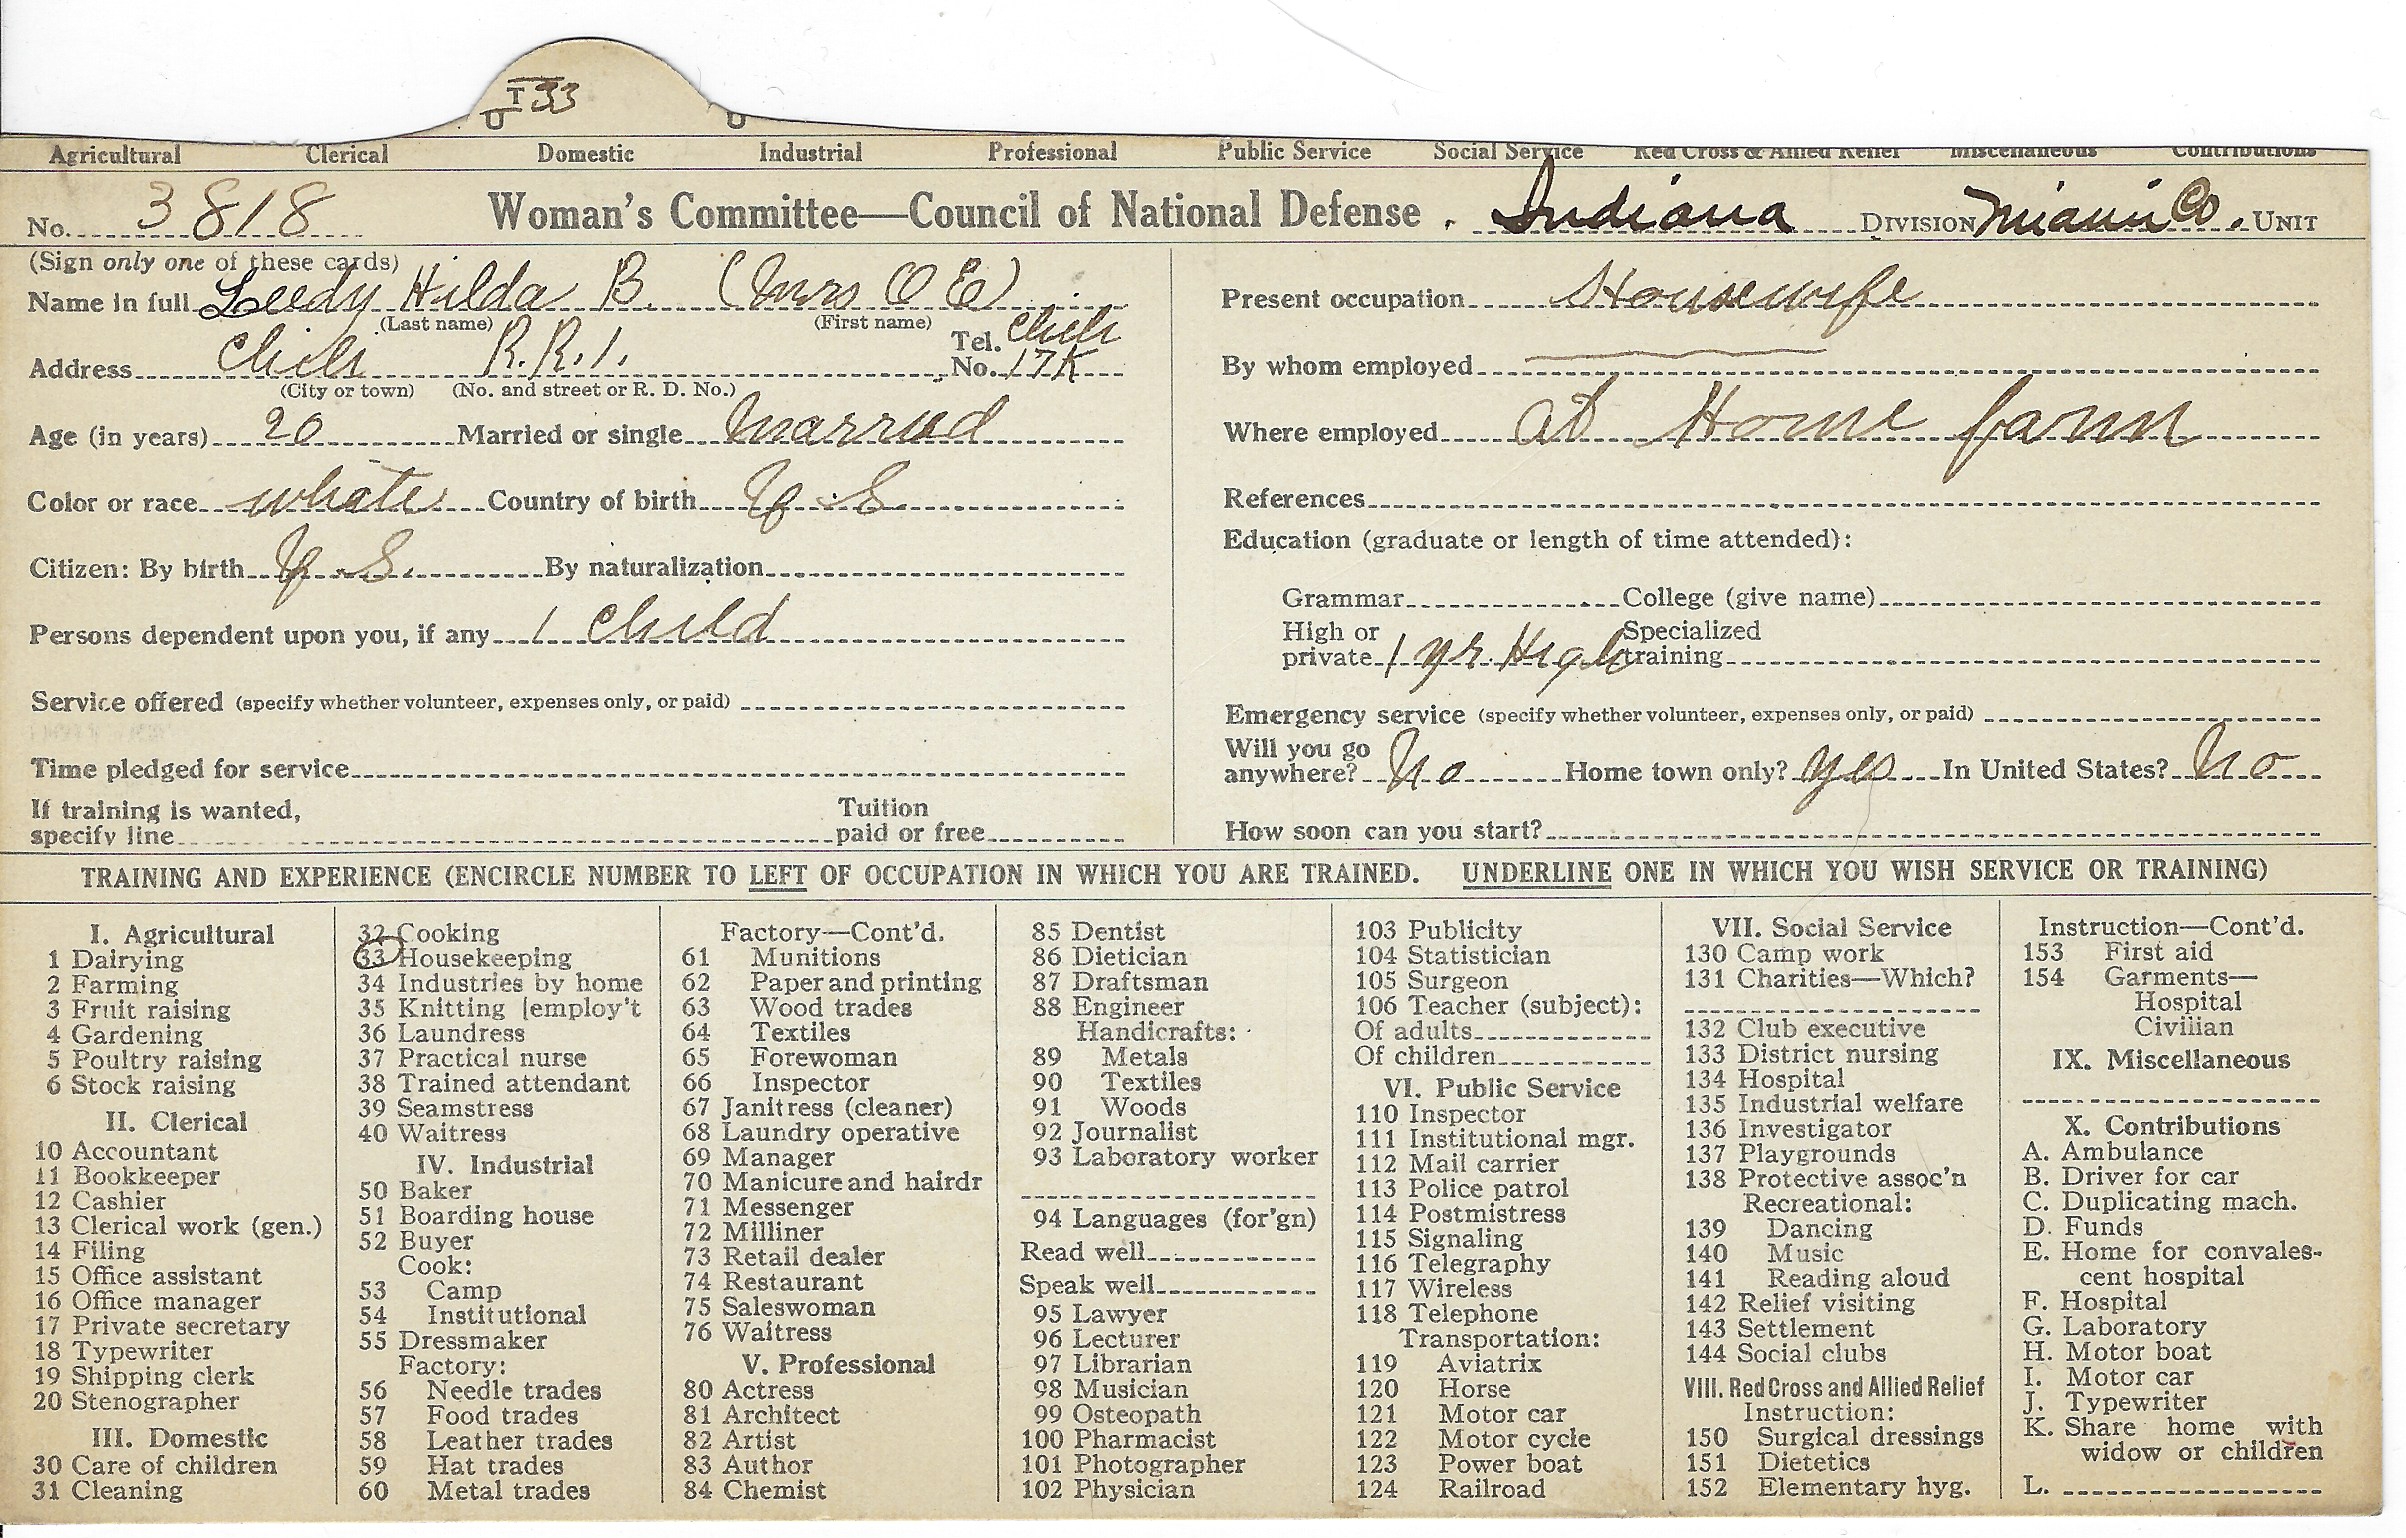 T 33
Agricultural Clerical Domestic Industrial Professional Public Service Social Service Red Cross & Allied Relief Miscellaneous Contributions
No. 3818 Woman's Committee—Council of National Defense. Indiana DIVISION Miami Co. UNIT
(Sign only one of these cards)
Name in full Leedy Hilda B. (Mrs O E)
(Last name) (First name)
Address Chili R.R.1. Tel. No. Chili 17K
(City or town) (No. and street or R. D. No.)
Age (in years) 20 Married or single Married
Color or race white Country of birth U.S.
Citizen: By birth U.S. By naturalization
Persons dependent upon you, if any 1 Child
Service offered (specify whether volunteer, expenses only, or paid)
Time pledged for service
If training is wanted, specify line Tuition paid or free
Present occupation Housewife
By whom employed
Where employed at Home farm
References
Education (graduate or length of time attended):
Grammar College (give name)
High or private 1 yr. High Specialized training
Emergency service (specify whether volunteer, expenses only, or paid)
Will you go anywhere? No Home town only? yes In United States? No
How soon can you start?
TRAINING AND EXPERIENCE (ENCIRCLE NUMBER TO LEFT OF OCCUPATION IN WHICH YOU ARE TRAINED. UNDERLINE ONE IN WHICH YOU WISH SERVICE OR TRAINING)
I. Agricultural
1 Dairying
2 Farming
3 Fruit raising
4 Gardening
5 Poultry raising
6 Stock raising
II. Clerical
10 Accountant
11 Bookkeeper
12 Cashier
13 Clerical work (gen.)
14 Filing
15 Office assistant
16 Office manager
17 Private secretary
18 Typewriter
19 Shipping clerk
20 Stenographer
III. Domestic
30 Care of children
31 Cleaning
32 Cooking
33 Housekeeping
34 Industries by home
35 Knitting [employ't
36 Laundress
37 Practical nurse
38 Trained attendant
39 Seamstress
40 Waitress
IV. Industrial
50 Baker
51 Boarding house
52 Buyer
Cook:
53 Camp
54 Institutional
55 Dressmaker
Factory:
56 Needle trades
57 Food trades
58 Leather trades
59 Hat trades
60 Metal trades
Factory—Cont'd.
61 Munitions
62 Paper and printing
63 Wood trades
64 Textiles
65 Forewoman
66 Inspector
67 Janitress (cleaner)
68 Laundry operative
69 Manager
70 Manicure and hairdr
71 Messenger
72 Milliner
73 Retail dealer
74 Restaurant
75 Saleswoman
76 Waitress
V. Professional
80 Actress
81 Architect
82 Artist
83 Author
84 Chemist
85 Dentist
86 Dietician
87 Draftsman
88 Engineer
Handicrafts:
89 Metals
90 Textiles
91 Woods
92 Journalist
93 Laboratory worker
94 Languages (for'gn)
Read well
Speak well
95 Lawyer
96 Lecturer
97 Librarian
98 Musician
99 Osteopath
100 Pharmacist
101 Photographer
102 Physician
103 Publicity
104 Statistician
105 Surgeon
106 Teacher (subject):
Of adults
Of children
VI. Public Service
110 Inspector
111 Institutional mgr.
112 Mail carrier
113 Police patrol
114 Postmistress
115 Signaling
116 Telegraphy
117 Wireless
118 Telephone
Transportation:
119 Aviatrix
120 Horse
121 Motor car
122 Motor cycle
123 Power boat
124 Railroad
VII. Social Service
130 Camp work
131 Charities—Which?
132 Club executive
133 District nursing
134 Hospital
135 Industrial welfare
136 Investigator
137 Playgrounds
138 Protective assoc'n
Recreational:
139 Dancing
140 Music
141 Reading aloud
142 Relief visiting
143 Settlement
144 Social clubs
VIII. Red Cross and Allied Relief
Instruction:
150 Surgical dressings
151 Dietetics
152 Elementary hyg.
Instruction—Cont'd.
153 First aid
154 Garments—
Hospital
Civilian
IX. Miscellaneous
X. Contributions
A. Ambulance
B. Driver for car
C. Duplicating mach.
D. Funds
E. Home for convales-
cent hospital
F. Hospital
G. Laboratory
H. Motor boat
I. Motor car
J. Typewriter
K. Share home with
widow or children
L.